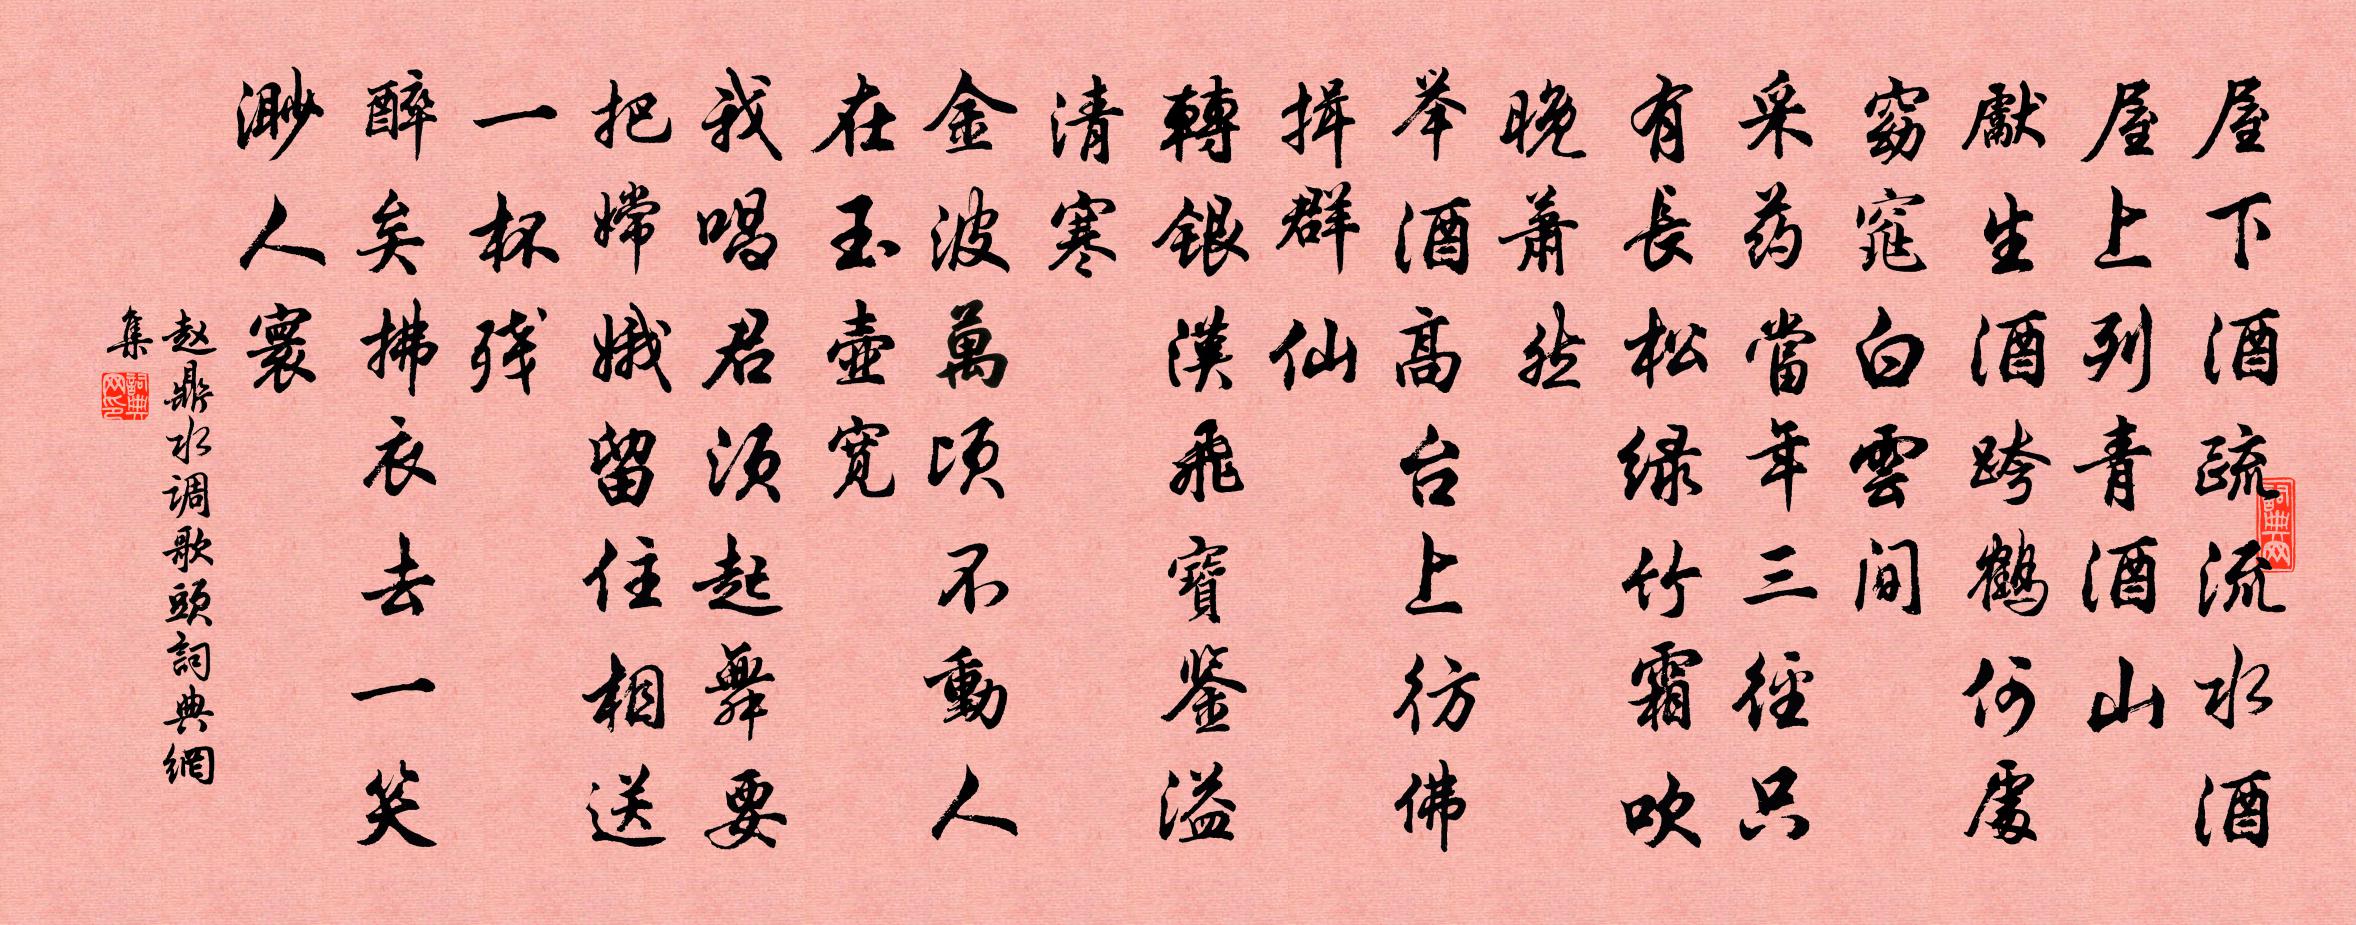 屋下酒疏流水酒
屋上列青酒山
獻生酒跨鶴何處
窈窕白雲间
采药當年三徑只
有長松绿竹霜吹
晚萧然
举酒高台上彷佛
揖群仙
轉银漢飛寶鉴溢
清寒
金波萬頃不動人
在玉壶宽
我唱君须起舞要
把嫦娥留住相送
一杯残
醉矣拂衣去一笑
渺人寰
赵鼎水调歌頭詞典網
集
詞典网印
詞典网